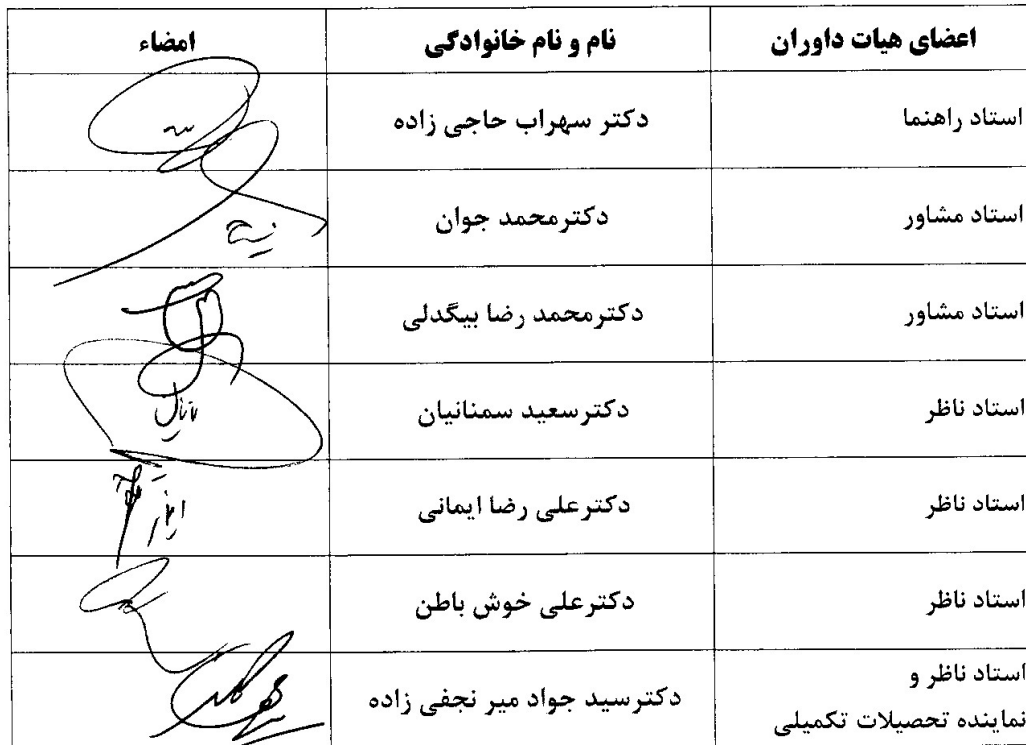 اعضای هیات داوران نام و نام خانوادگی امضاء
استاد راهنما دکتر سهراب حاجی زاده
استاد مشاور دکترمحمد جوان
استاد مشاور دکترمحمد رضا بیگدلی
استاد ناظر دکترسعید سمنانیان
استاد ناظر دکترعلی رضا ایمانی
استاد ناظر دکترعلی خوش باطن
استاد ناظر و
نماینده تحصیلات تکمیلی دکترسید جواد میر نجفی زاده